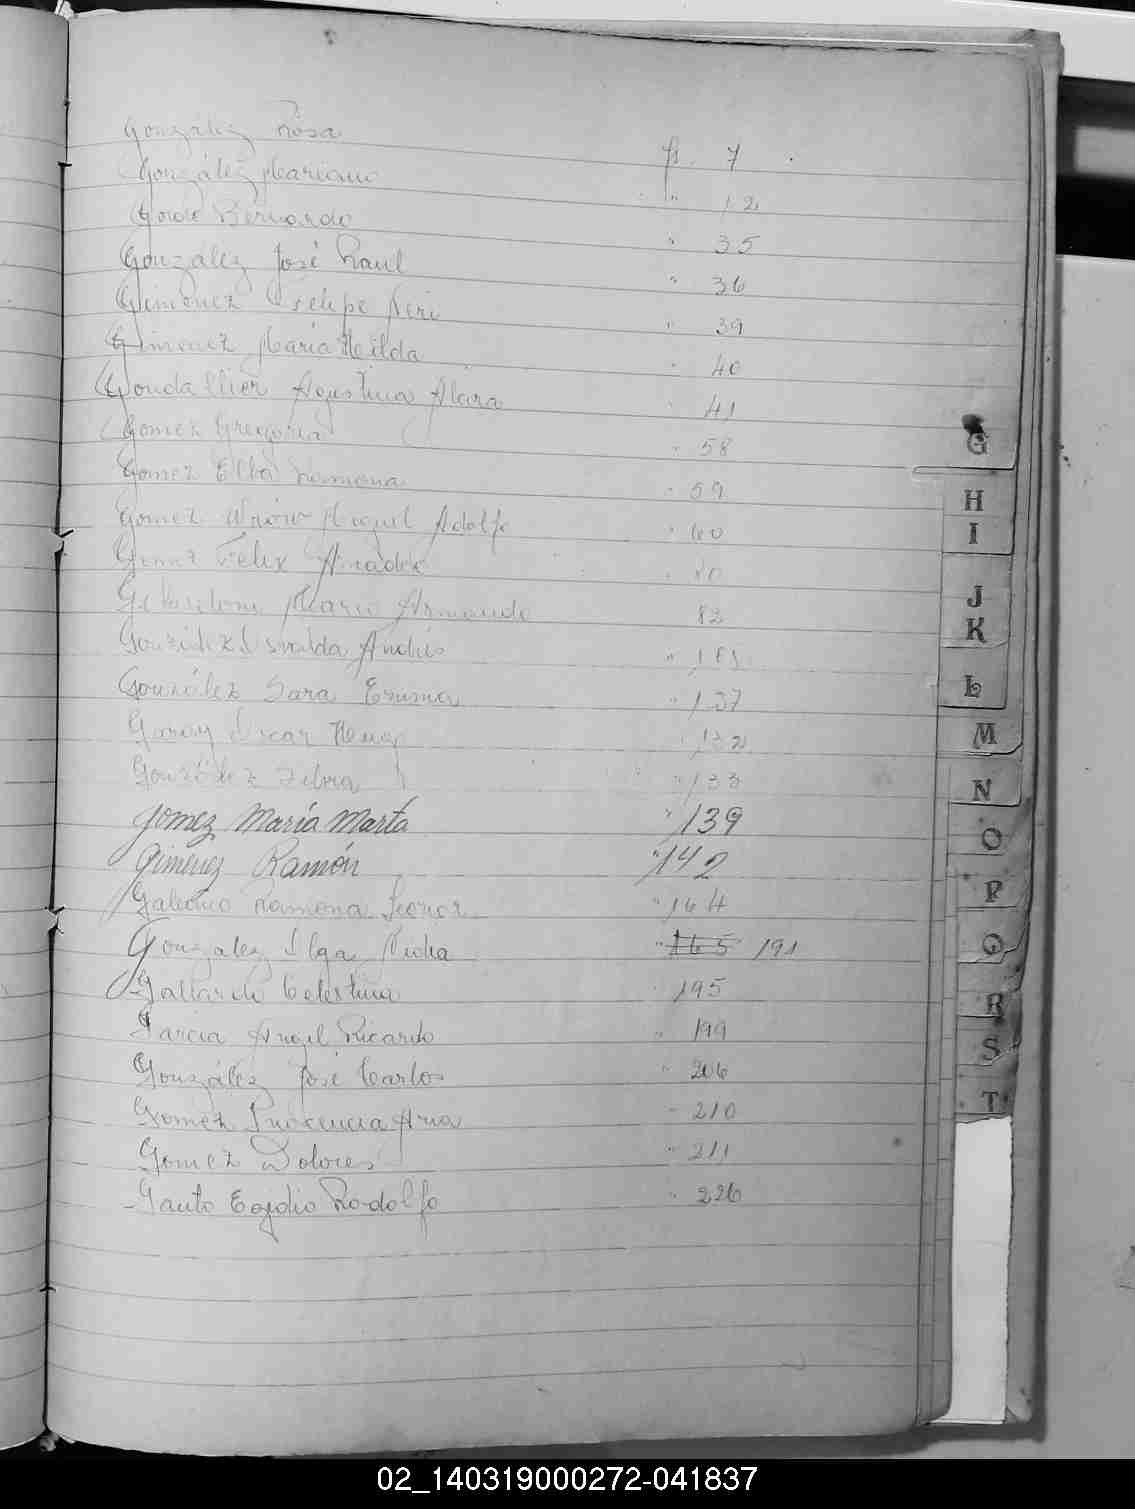 González Rosa fs. 7
González Mariano " 12
Gordo Bernardo " 35
González José Raul " 36
Gimenez Felipe Neri " 39
Gimenez María Hilda " 40
Gondallier Agustina Alara " 41
Gomez Gregoria " 58
Gomez Elba Ramona " 59
Gomez Miguel Adolfo " 60
Gomez Felix Amadeo " 80
Mario Armando 82
González Osvalda Andrés "
González Sara Emma " 137
Garay Oscar Henry " 132
González Zelma " 133
Gomez María Marta " 139
Gimenez Ramón " 142
Galeano Ramona Leonor " 164
Gonzalez Ilga " 165 191
Gallardo Celestina 195
Garcia Angel Ricardo " 199
González José Carlos " 206
Gomez Inocencia Ana " 210
Gomez Dolores " 211
Gauto Egidio Rodolfo " 226
G
H
I
J
K
L
M
N
O
P
Q
R
S
T
02_140319000272-041837